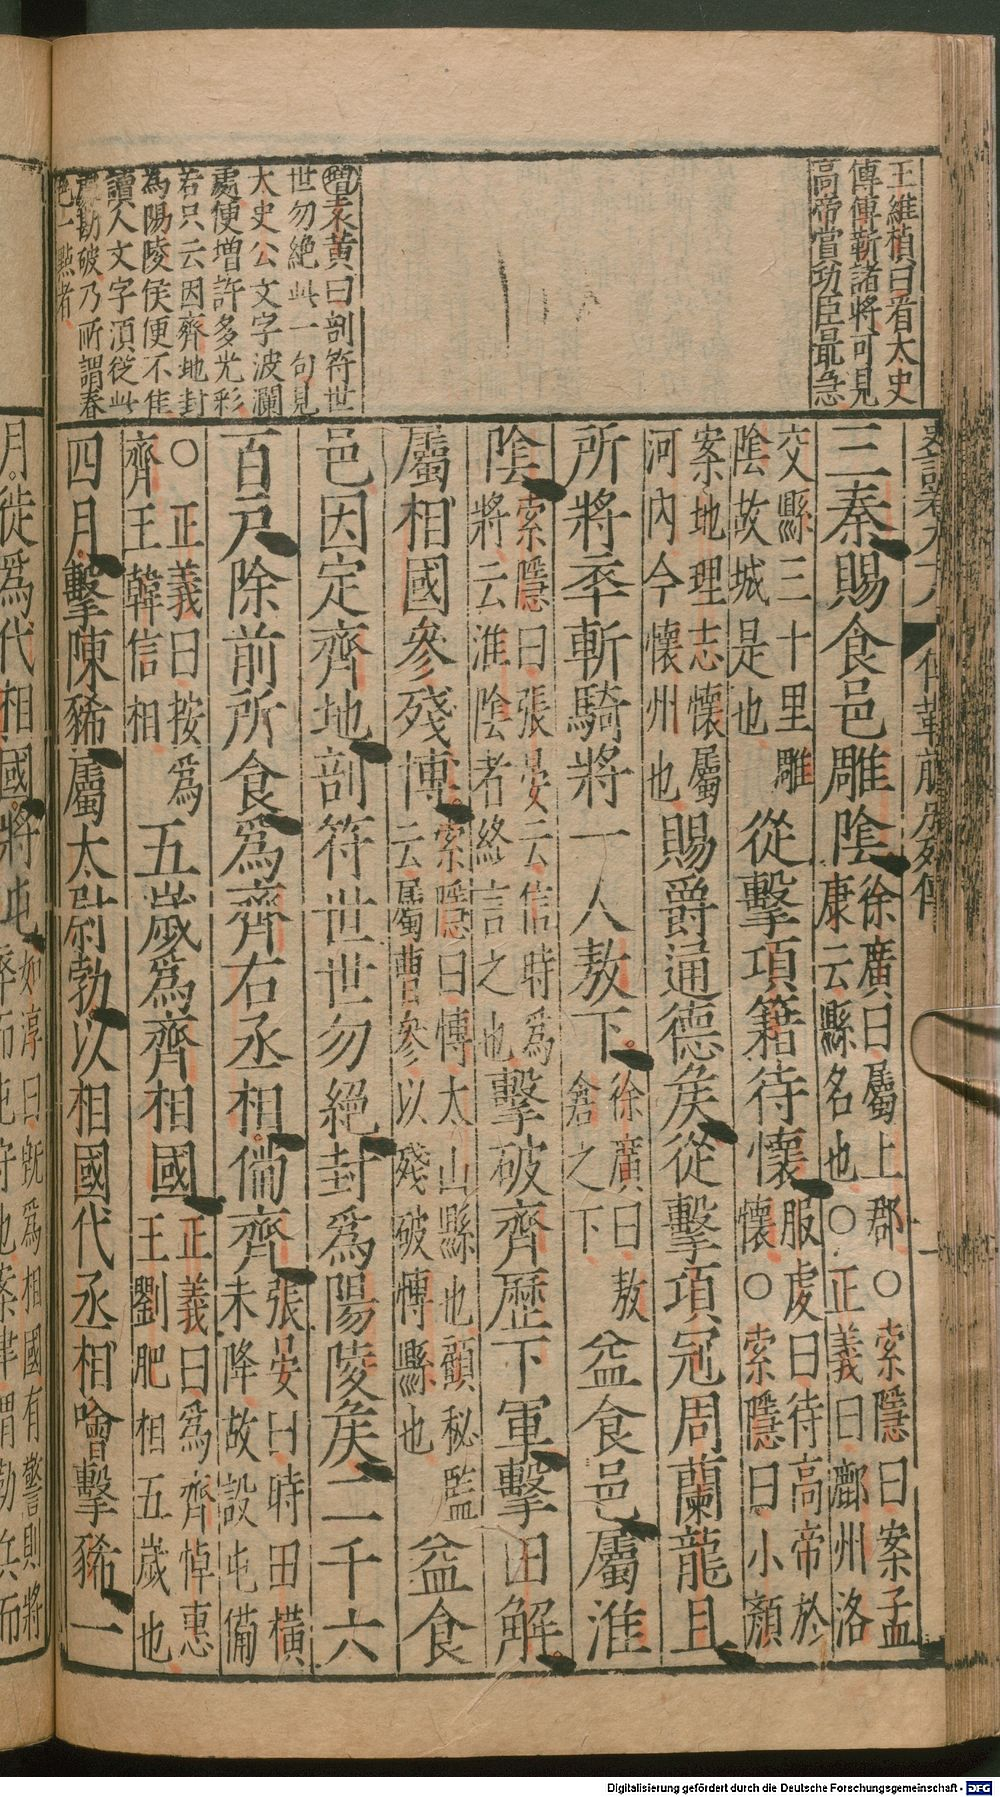 王維楨曰看太史
傳傅靳諸將可見
高帝賞功臣最急
袁黃曰剖符世
世勿絶此一句見
太史公文字波瀾
處便增許多光彩
若只云因齊地封
為陽陵侯便不佳
讀人文字湏從此
勘破乃所謂春
色一點者
史記卷九十八 傅靳蒯成列傳 一
三秦賜食邑雕陰
徐廣曰屬上郡○索隱曰案孟
康云縣名也○正義曰鄜州洛
交縣三十里雕
陰故城是也
從擊項籍待懷
服虔曰待高帝於
懷○索隱曰小顏
案地理志懷屬
河內今懷州也
賜爵通德矦從擊項冠周蘭龍且
所將卒斬騎將一人敖下
徐廣曰敖
倉之下
益食邑屬淮
陰
索隱曰張晏云信時爲
將云淮陰者終言之也
擊破齊歷下軍擊田解
屬相國參殘博
索隱曰博太山縣也顧秘監
云屬曹參以殘破博縣也
益食
邑因定齊地剖符世世勿絕封爲陽陵矦二千六
百戸除前所食爲齊右丞相備齊
張晏曰時田橫
未降故設屯備
○正義曰按爲
齊王韓信相
五歲爲齊相國
正義曰爲齊悼惠
王劉肥相五歲也
四月擊陳豨屬太尉勃以相國代丞相噲擊豨一
月徙爲代相國將屯
如淳曰旣爲相國有警則將
卒而屯守也案律謂勒兵而
Digitalisierung gefördert durch die Deutsche Forschungsgemeinschaft - DFG